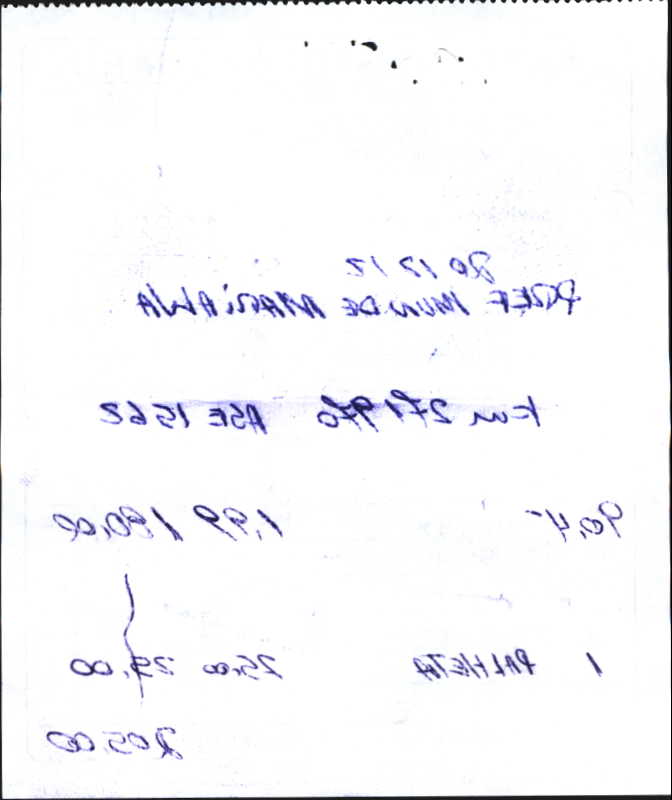 20 12 12
PREF MUN DE MARIANA
Km 271970 ASE 1562
90,4 1,99 180,00
1 PALHETA 25,00 25,00
205,00